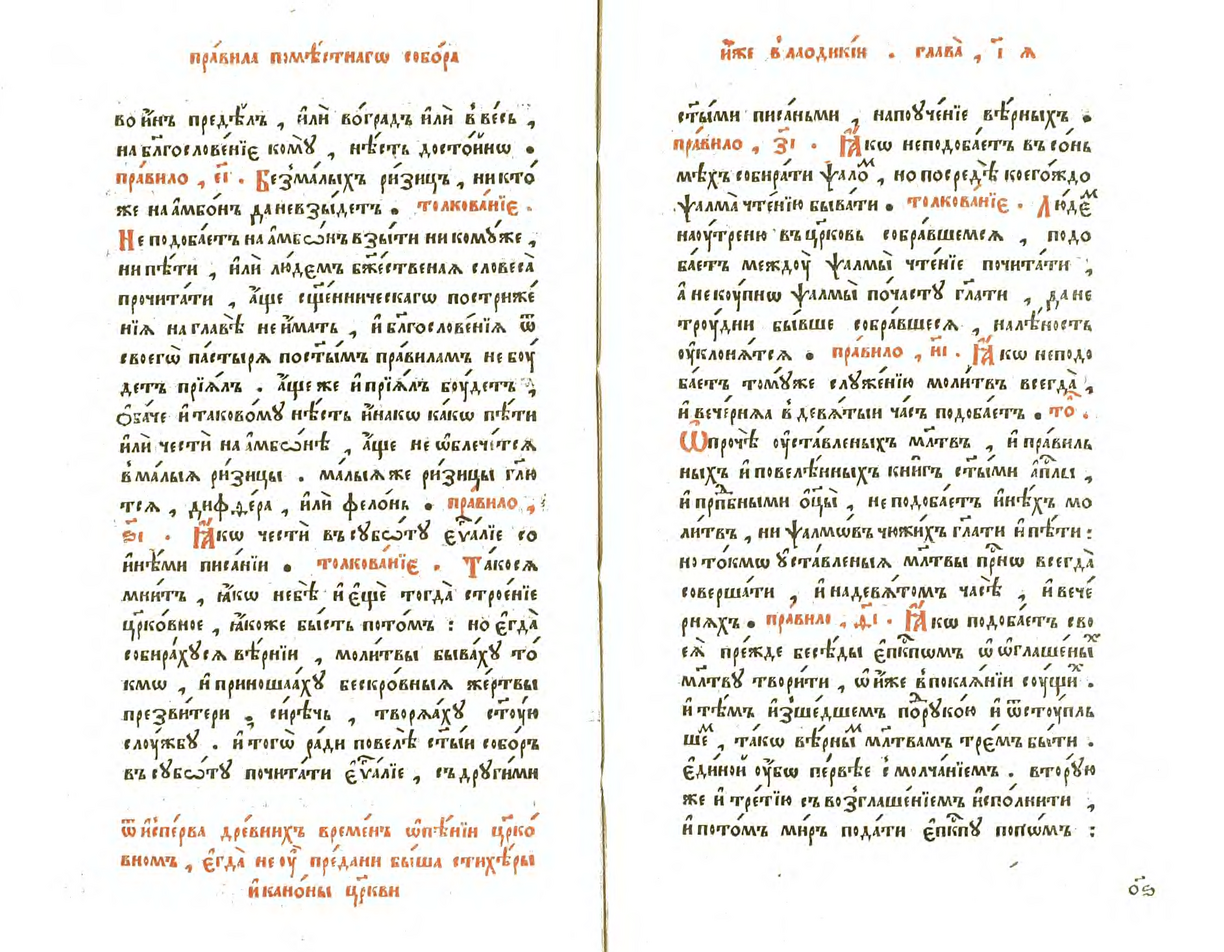 пра́вила помѣ́стнагѡ собо́ра
во и҆́нъ предѣ́лъ , и҆лѝ во́градъ и҆лѝ в̾ ве́сь ,
на бл҃гослове́нїє комꙋ̀ , нѣ́сть досто́йнѡ .
пра́вило , є҃і . Без̾ма́лыхъ ри́зицъ , никто́
же на а҆мбо́нъ да невзы́детъ . толкова́нїє .
Не подоба́етъ на а҆мбѡ́нъ взы́ти ни комꙋ́же ,
ни пѣ́ти , и҆лѝ лю́демъ бж҃ественаѧ словеса̀
прочита́ти , а҆́ще сщ҃е́нническагѡ постриже́
нїѧ на главѣ̀ не и҆́мать , и҆ бл҃гослове́нїѧ ѿ
своегѡ̀ па́стырѧ по ст҃ы́мъ пра́виламъ не боу́
детъ прїѧ́лъ . а҆́ще же и҆ прїѧ́лъ боу́детъ ,
ѻ҆ба́че и҆ таково́мꙋ нѣ́сть и҆́накѡ ка́кѡ пѣ́ти
и҆лѝ честѝ на а҆мбѡ́нѣ , а҆́ще не ѡ҆блечи́тсѧ
в̾ ма́лыѧ ри́зицы . ма́лыѧ же ри́зицы гл҃ю́
тсѧ , дифѳе́ра , и҆лѝ фело́нь . пра́вило ,
ѕ҃і . Ꙗ҆́кѡ честѝ въ сꙋбѡ́тꙋ є҆ѵ҃а́лїе со
и҆нѣ́ми писа́нїи . толкова́нїє . Та́ко сѧ
мни́тъ , ꙗ҆́кѡ не бѣ̀ и҆ є҆щѐ тогда̀ строе́нїе
цр҃ко́вное , ꙗ҆́коже бы́сть пото́мъ : но є҆гда̀
собира́хꙋсѧ вѣ́рнїи , моли́твы быва́хꙋ то́
кмѡ , и҆ приноша́ахꙋ бескро́вныѧ же́ртвы
презви́тери , си́рѣчь , творѧ́ахꙋ ст҃ꙋ́ю
слоу́жбꙋ . и҆ тогѡ̀ ра́ди повелѣ̀ ст҃ы́и собо́ръ
въ сꙋбѡ́тꙋ почита́ти є҆ѵ҃а́лїе , съ дрꙋги́ми
ѿ и҆спе́рва дре́внихъ време́нъ ѡ҆ пѣ́нїи цр҃ко́
вномъ , є҆гда̀ не оу҆̀ пре́дани бы́ша стихе́ры
и҆ кано́ны цр҃кви
и҆́же в̾ лаодикі́и . глава̀ , і҃ ꙗ
ст҃ы́ми писа́ньми , на поуче́нїе вѣ́рныхъ .
пра́вило , з҃і . Ꙗ҆́кѡ неподоба́етъ въ со́нь
мѣхъ собира́ти ѱало́м , но посредѣ̀ коего́ждо
ѱалма̀ чте́нїю быва́ти . толкова́нїє . Лю́дем
на оу́треню въ цр҃ковь собра́вшемсѧ , подо
ба́етъ междоу̀ ѱалмы̀ чте́нїе почита́ти ,
а҆ не коу́пнѡ ѱалмы̀ по́частꙋ гл҃ати , да не
троу́дни бы́вше собра́вшеесѧ , на лѣ́ность
оу҆клонѧ́тсѧ . пра́вило , и҃і . Ꙗ҆́кѡ неподо
ба́етъ томꙋ́же слꙋже́нїю моли́твъ всегда̀ ,
и҆ вече́рнѧѧ в̾ девѧ́тыи ча́съ подоба́етъ . то̑ .
Ѡ҆проче́ оу҆ста́вленыхъ мл҃твъ , и҆ пра́виль
ныхъ и҆ повелѣ́нныхъ кни́гъ ст҃ы́ми а҆пл҃ы ,
и҆ прп҃бными ѻ҆ц҃ы̀ , не подоба́етъ и҆нѣ́хъ мо
ли́твъ , ни ѱалмѡ́въ чюжи́хъ гл҃ати и҆ пѣ́ти :
но то́кмѡ ꙋ҆ста́вленыѧ мл҃твы пр҃нѡ всегда̀
соверша́ти , и҆ на девѧ́томъ часѣ̀ , и҆ вече́
рнѧхъ . пра́вило , ѳ҃і . Ꙗ҆́кѡ подоба́етъ сво
еѧ̀ пре́жде бесѣ́ды є҆пкⷭ҇пѡмъ ѡ҆ ѡ҆глаше́ныⷯ
мл҃твꙋ твори́ти , ѡ҆ и҆́же в̾ покаѧ́нїи соу́щиⷯ .
и҆ тѣ́мъ и҆зше́дшемъ под̾рꙋко́ю и҆ ѿстоу́пль
шеⷨ , та́кѡ вѣ́рныⷨ мл҃твамъ тре́мъ бы́ти .
є҆ди́ной оу҆́бѡ пе́рвѣе с̾ молча́нїемъ . втору́ю
же и҆ тре́тїю съ возглаше́нїемъ и҆спо́лнити ,
и҆ пото́мъ ми́ръ пода́ти є҆пкⷭ҇пꙋ попѡ́мъ :
о҃ѕ